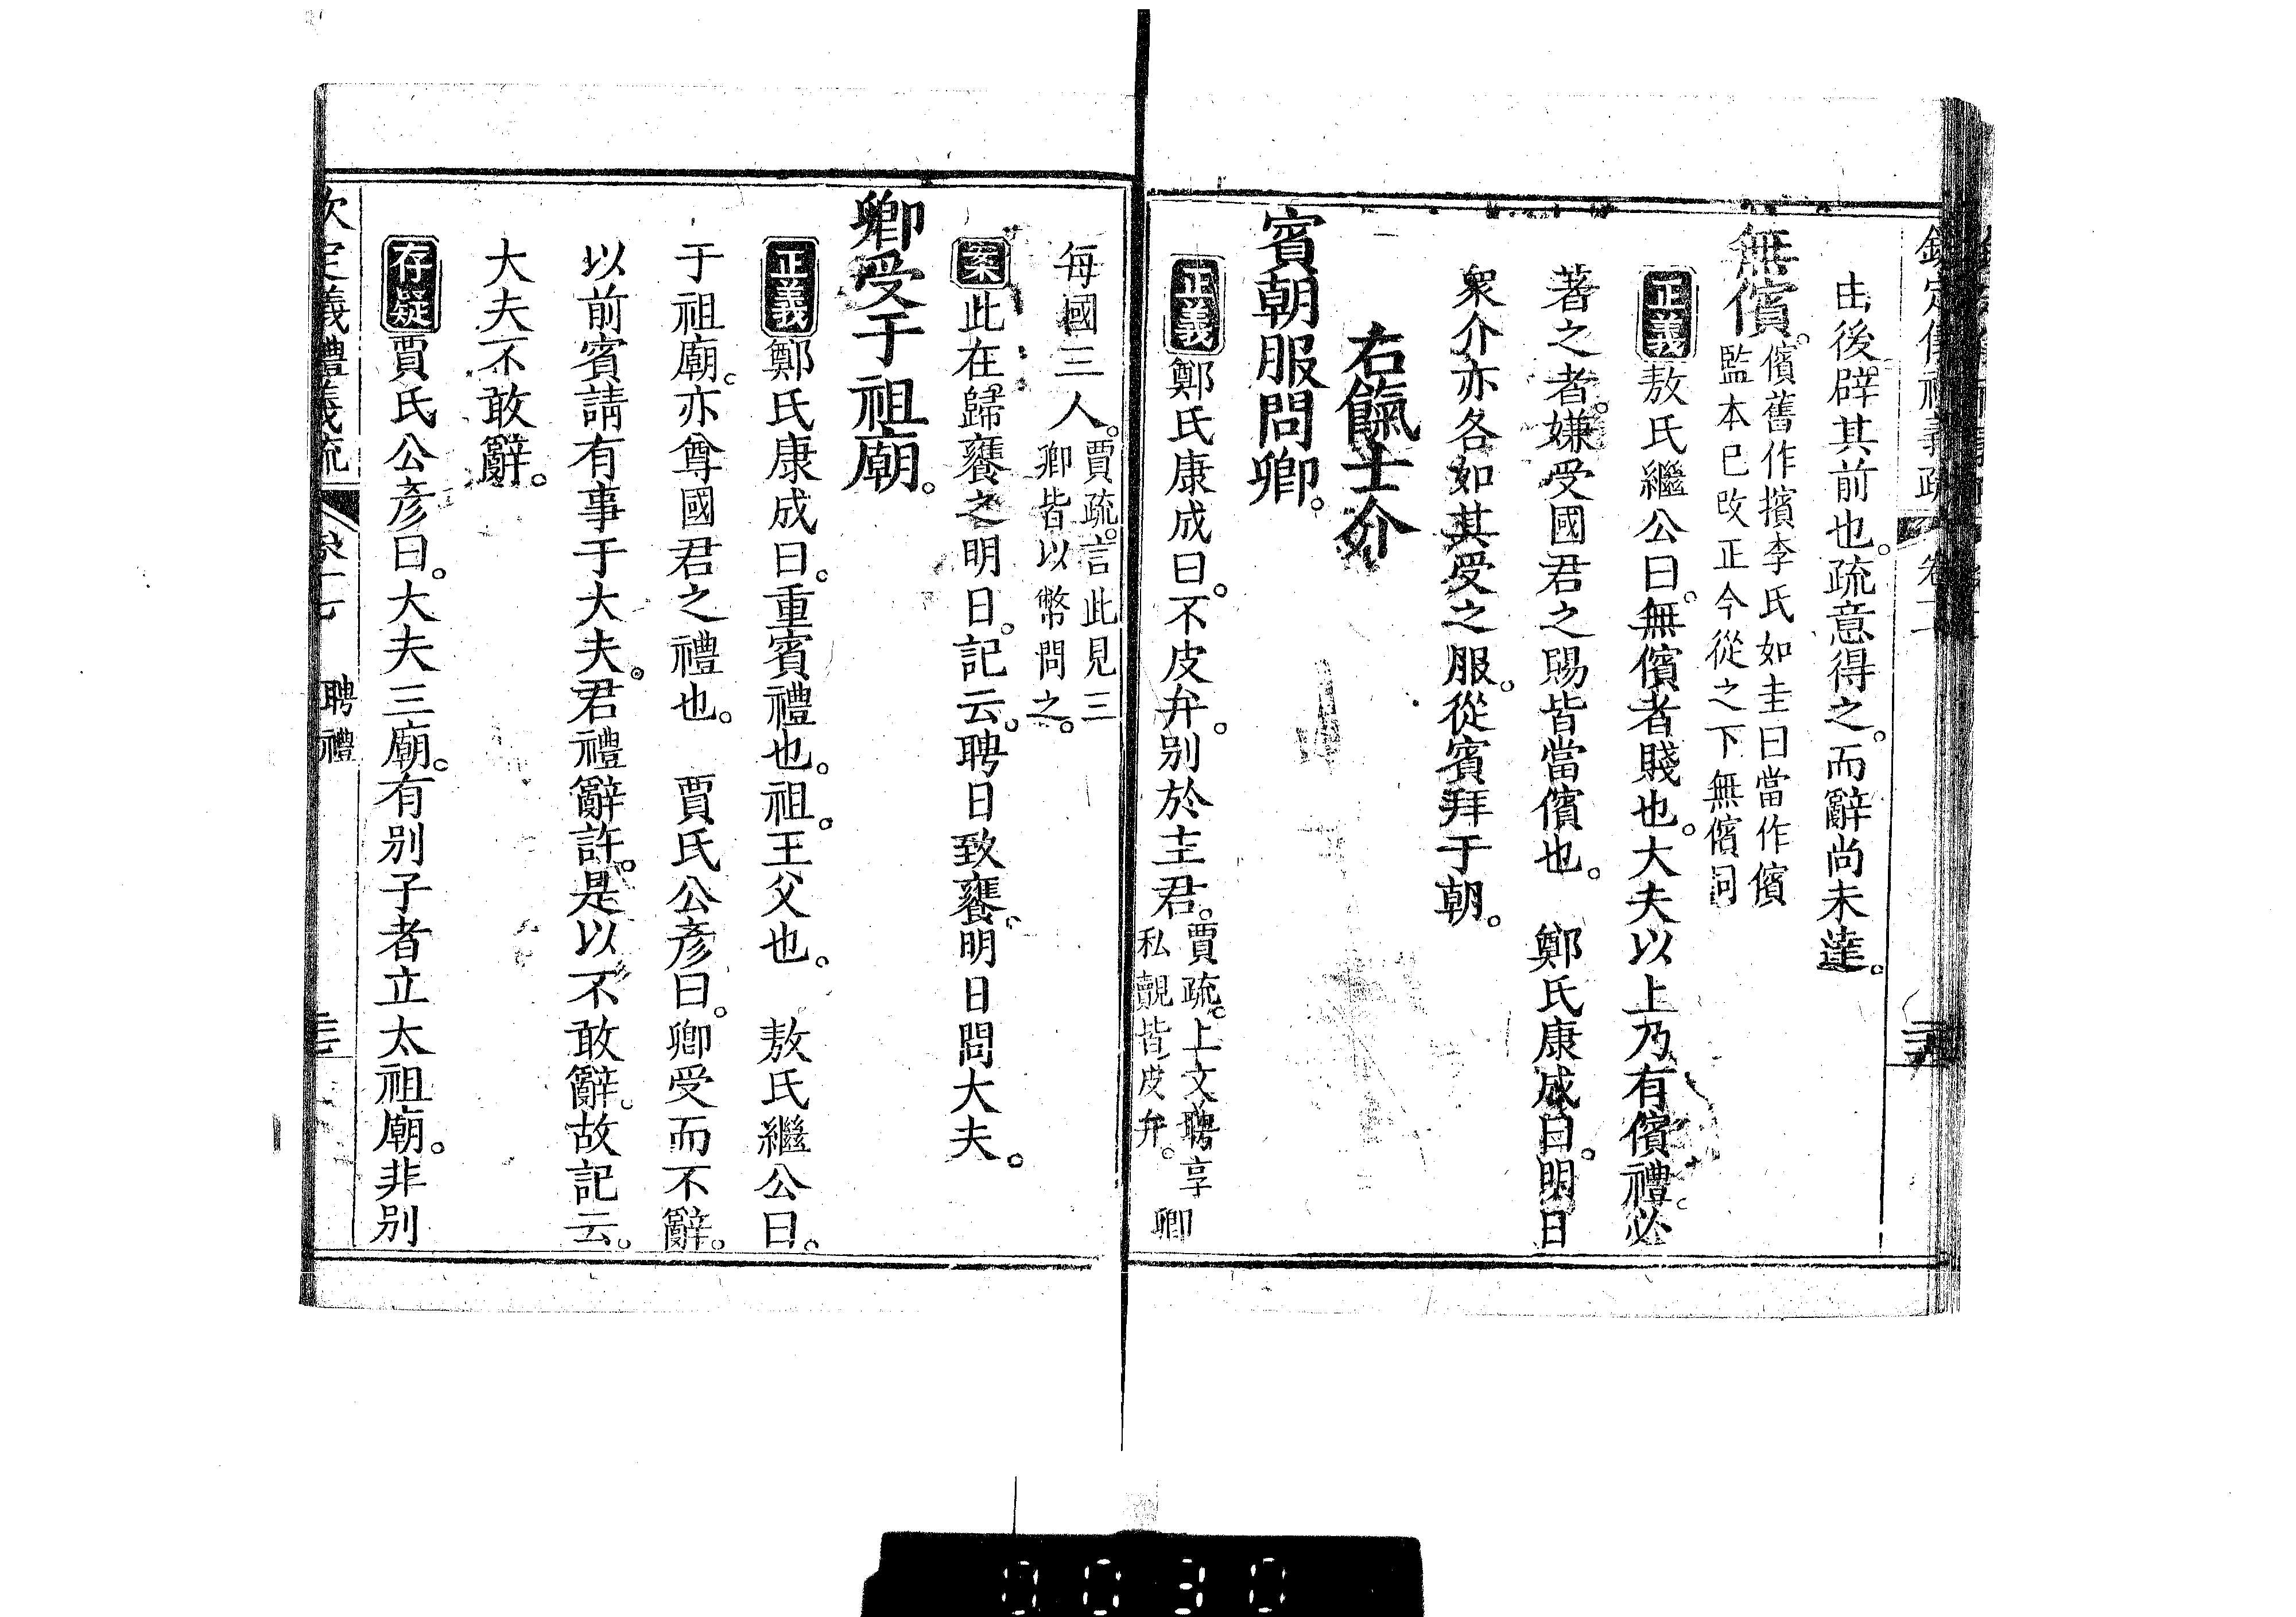 由後。辟其前也。疏意得之。而辭尚未達。
無儐。儐舊作擯李氏如圭曰當作儐
監本已改正今從之下無儐同
正義敖氏繼公曰。無儐者賤也。大夫以上乃有儐禮。必
著之者。嫌受國君之賜皆當儐也。　鄭氏康成曰。明日
衆介亦各如其受之服。從賓拜于朝。
右餼士介
賓朝服問卿。
正義鄭氏康成曰。不皮弁。別於主君。賈疏。上文聘享
私覿皆皮弁。
卿
每國三人。賈疏。言此見三
卿皆以幣問之。
案此在歸饔之明日。記云。聘日致饔。明日問大夫。
卿受于祖廟。
正義鄭氏康成曰。重賓禮也。祖。王父也。　敖氏繼公曰。
于祖廟。亦尊國君之禮也。　賈氏公彥曰。卿受而不辭。
以前賓請有事于大夫。君禮辭許。是以不敢辭。故記云。
大夫不敢辭。
存疑賈氏公彥曰。大夫三廟。有別子者立太祖廟。非別
欽定義禮義疏　聘禮
0030